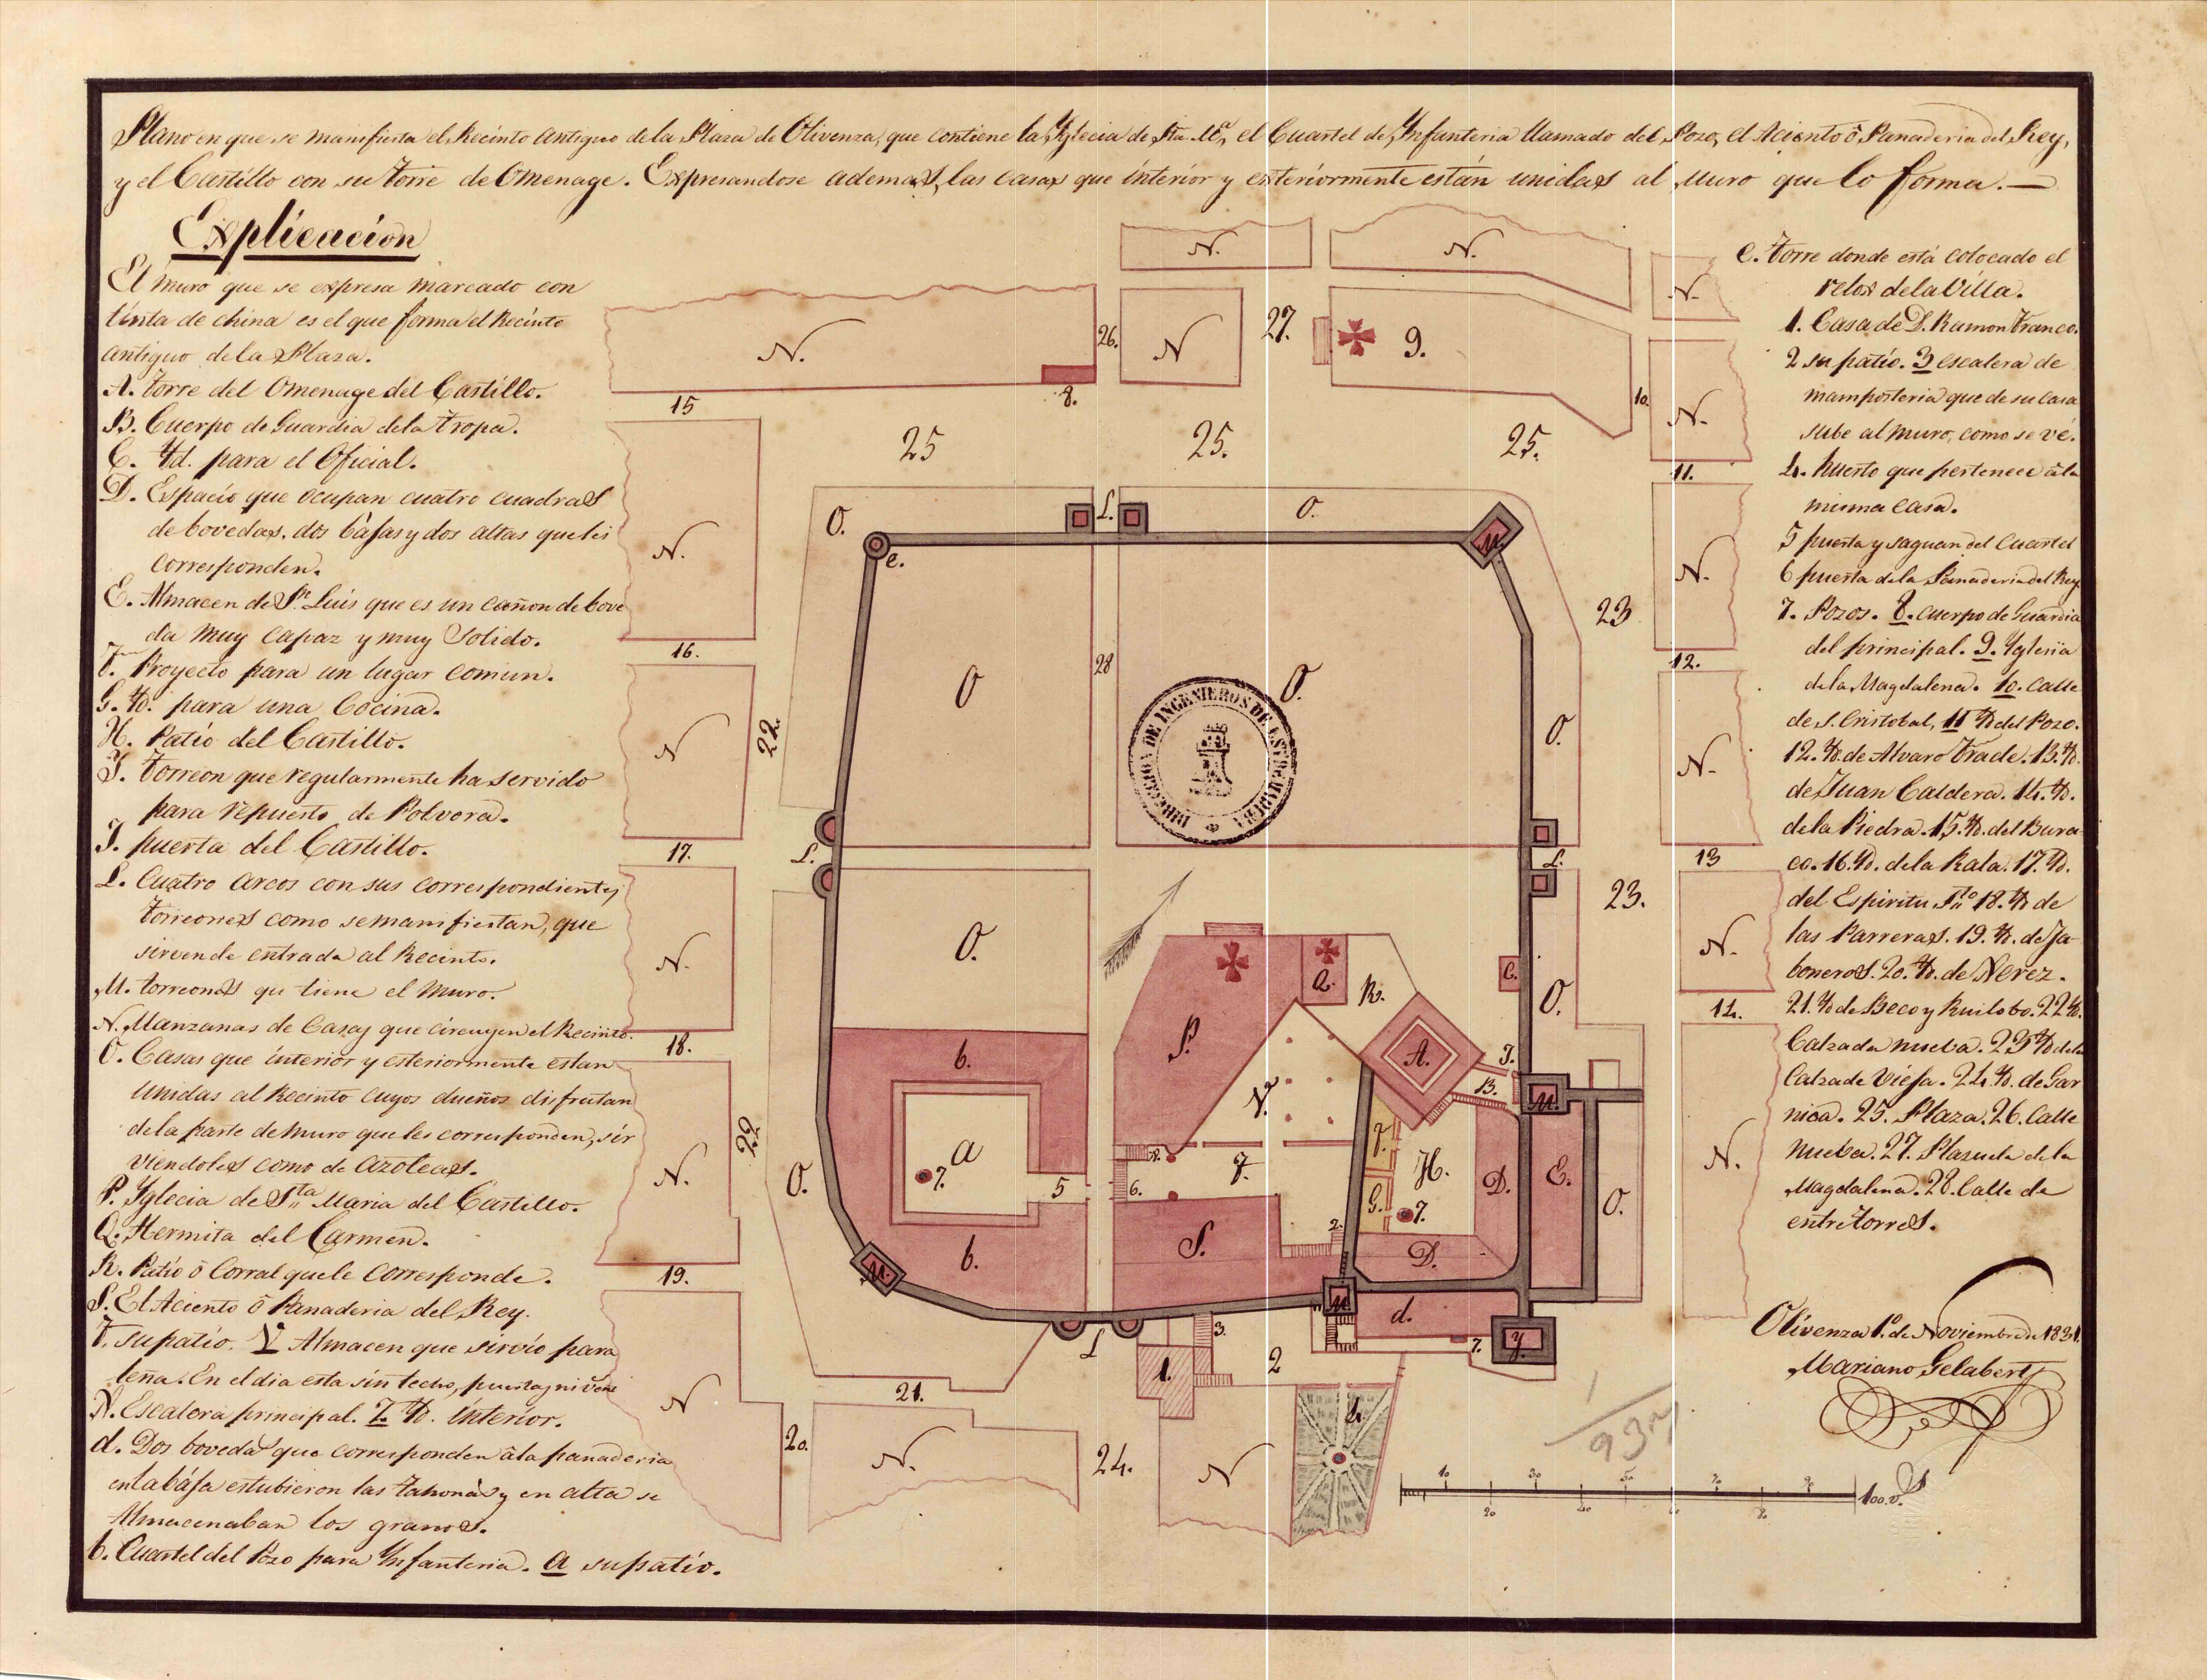 Plano en que se manifiesta el Recinto antiguo de la Plaza de Olivenza, que contiene la Yglecia de Sta. Ma., el Cuartel de Ynfanteria llamado del Pozo, el Aciento ó Panaderia del Rey,
y el Castillo con su Torre de Omenage. Expresandose ademas, las casas que interior y exteriormente están unidas al Muro que lo forma.—
Explicacion
El muro que se expresa marcado con
tinta de china es el que forma el Recinto
antiguo de la Plaza.
A. Torre del Omenage del Castillo.
B. Cuerpo de Guardia de la Tropa.
C. Yd. para el Oficial.
D. Espacio que ocupan cuatro cuadras
de bovedas, dos bajas y dos altas que les
corresponden.
E. Almacen de Sn. Luis que es un cañon de bove
da muy capaz y muy Solido.
F. Proyecto para un lugar comun.
G. Yd. para una Cocina.
H. Patio del Castillo.
Y. torreon que regularmente ha servido
para repuesto de Polvora.
J. puerta del Castillo.
L. Cuatro arcos con sus correspondientes
torreones como se manifiestan, que
sirven de entrada al Recinto.
M. torreones qe tiene el Muro.
N. Manzanas de Casas que circuyen el Recinto.
O. Casas que interior y esteriormente estan
unidas al Recinto cuyos dueños disfrutan
de la parte de muro que les corresponden, sir
viendoles como de azoteas.
P. Yglecia de Sta. Maria del Castillo.
Q. Hermita del Carmen.
R. Patio ó Corral que le corresponde.
S. El Aciento ó Panaderia del Rey.
T. su patio. V. Almacen que sirvio para
leña. En el dia esta sin techo, puertas
N. Escalera principal. Z. Yd. interior.
d. Dos bovedas que corresponden á la panaderia
en la bája estubieron las tahonas y en alta se
Almacenaban los granos.
b. Cuartel del Pozo para Ynfanteria. a su patio.
e. Torre donde está colocado el
relox de la Villa.
1. Casa de D. Ramon Franco.
2 su patio. 3 escalera de
mamposteria que de su casa
sube al muro, como se vé.
4. huerto que pertenece á la
misma casa.
5 puerta y saguan del Cuartel
6 puerta de la Panaderia del Rey
7. Pozos. 8. cuerpo de Guardia
del principal. 9. Yglesia
de la Magdalena. 10. Calle
de S. Cristobal, 11 Yd. del Pozo.
12. Yd. de Alvaro Frade. 13. Yd.
de Juan Caldera. 14. Yd.
de la Piedra. 15. Yd. del Bura
co. 16. Yd. de la Rala. 17. Yd.
del Espiritu Sto. 18. Yd. de
las Parreras. 19. Yd. de Ja
boneros. 20. Yd. de Xerez.
21. Yd. de Beco y Ruilobo. 22 Yd.
Calzada nueba. 23 Yd. de la
Calzada Vieja. 24. Yd. de Gar
nica. 25. Plaza. 26. Calle
nueba. 27. Plazuela de la
Magdalena. 28. Calle de
entre torres.
Olivenza 1º. de Noviembre de 1831.
Mariano Gelabert
DIRECCION DE INGENIEROS DE ESTREMADURA
N.
N.
N.
N.
26.
N
27.
9.
10.
N.
15
8.
11.
25
25.
25.
N.
O.
L.
O.
M.
e.
N.
23
16.
12.
28
O
O.
O.
N
22.
N.
17.
L.
L.
13
23.
O.
N.
Q.
R.
C.
O.
N.
P.
14.
18.
b.
A.
J.
B.
M.
V.
22
N.
a
7.
5
6.
T.
F.
H.
D.
E.
N.
O.
G.
7.
O.
S.
2.
D.
b.
M.
19.
M.
d.
L
3.
7.
Y.
1.
2
21.
N
4
20.
N.
24.
N
10
30
50
70
90
20
40
60
80
100.v.s